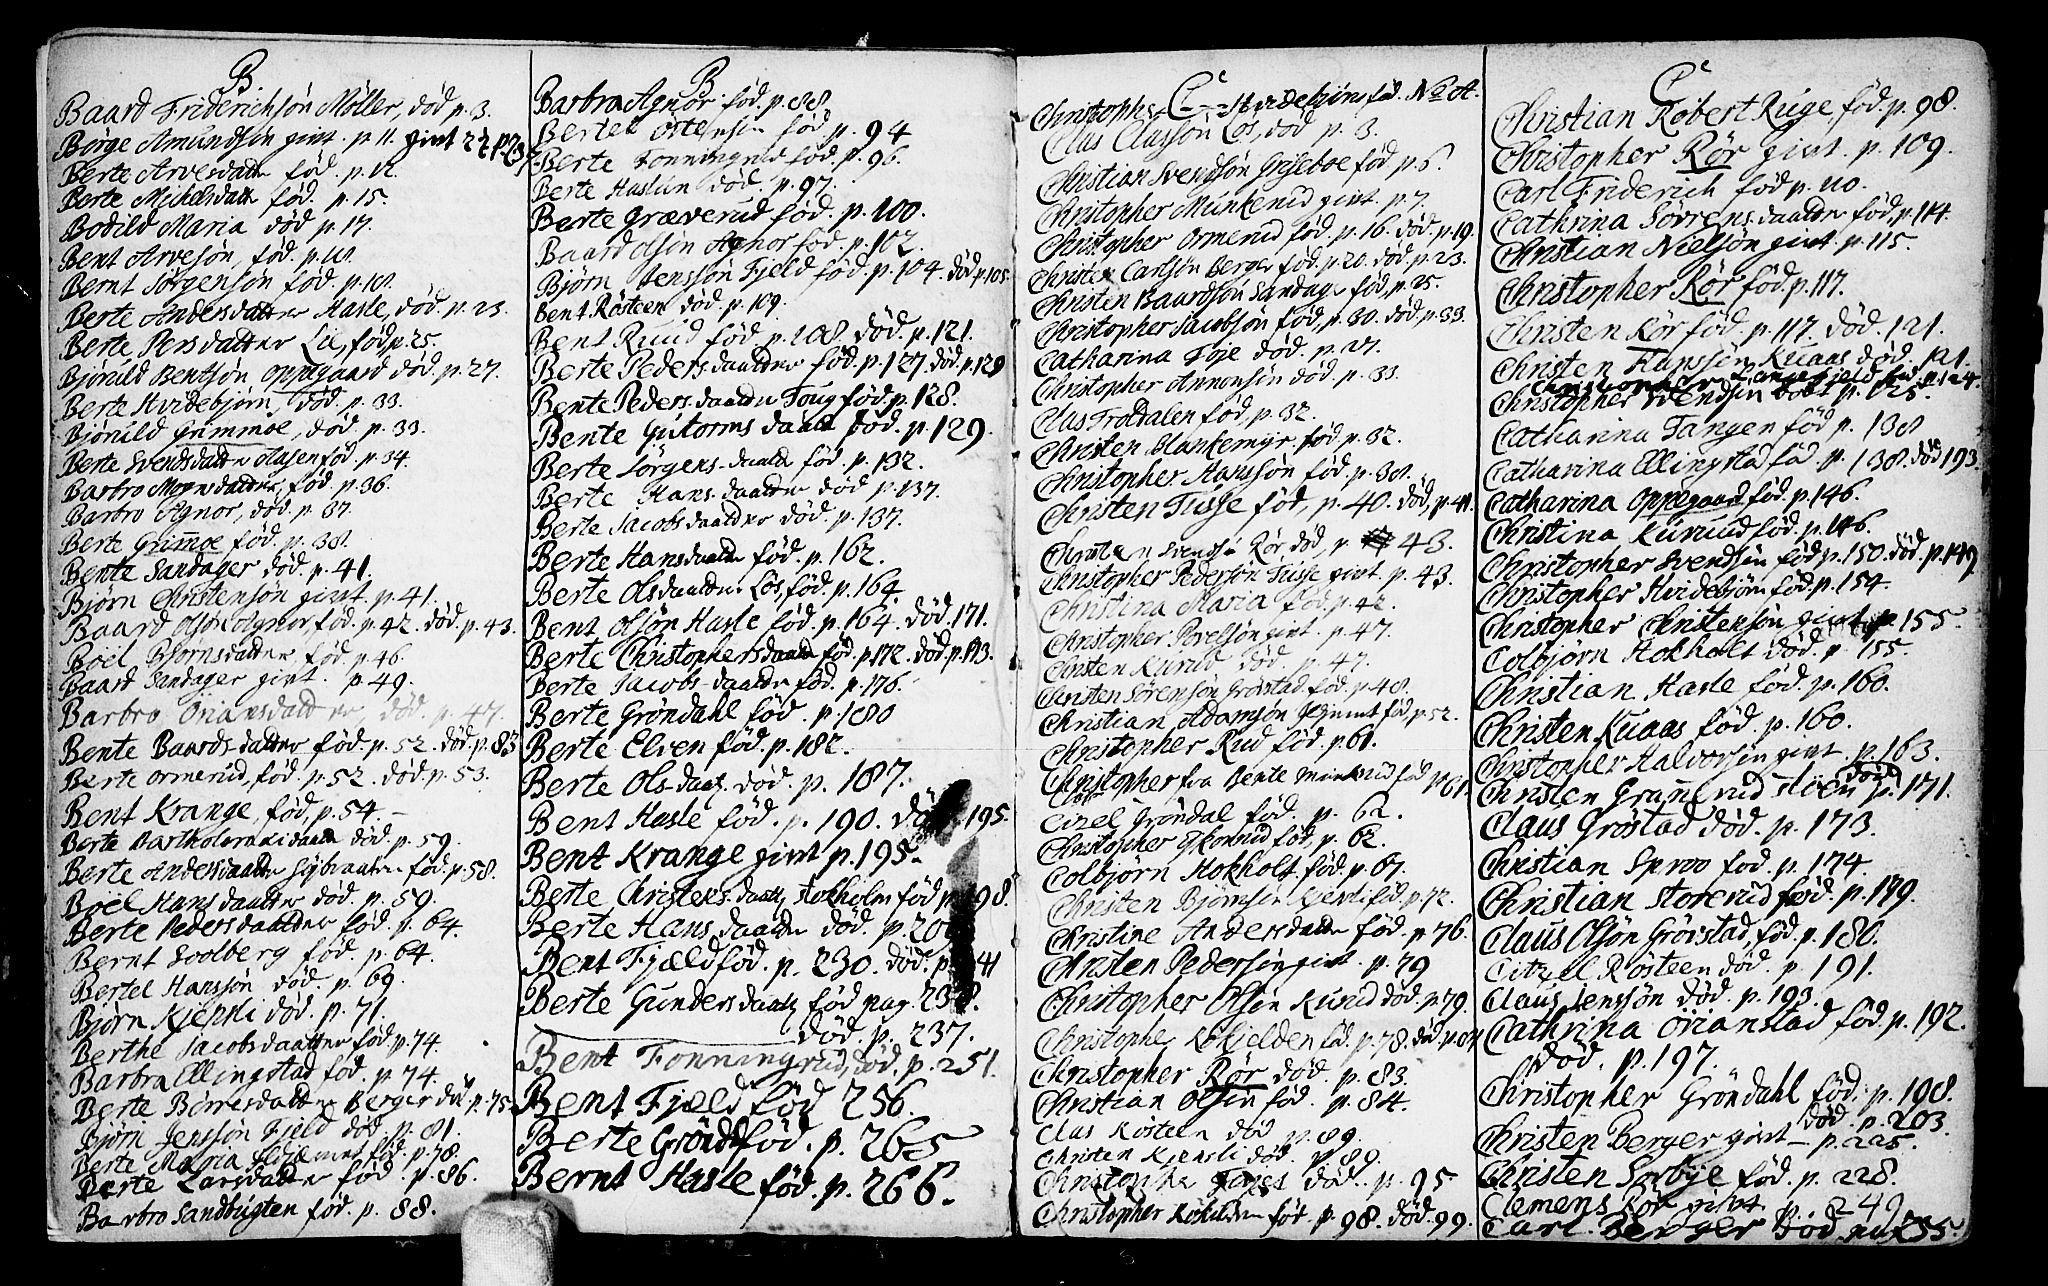 B
Baard Friderichsön Möller, död p. 3.
Börge Amundsön givt. p. 11. givt 27
Berte Arvesdatter föd. p. 12.
Berte Mickelsdatter föd. p. 15.
Bodild Maria död p. 17.
Bent Arvesön, föd. p.
Bernt Jörgensön föd. p. 18.
Berte Andersdatter Hasle, död. p. 23.
Berte Persdatter Lie, föd p. 25.
Björnild Bentsön Oppegaard död. p. 27.
Berte Hvidebjörn död. p. 33.
Björnild Grimmoe, död. p. 33.
Berte Svendsdatter Olasen föd. p. 34.
Barbro Mogensdatter, föd p. 36.
Barbro Agnor, död. p. 37.
Berte Grimoe föd. p. 38.
Bente Sandager död. p. 41.
Björn Christensön givt. p. 41.
Baard Olsön Agnor föd. p. 42. död. p. 43.
Boel Björnsdatter föd. p. 46.
Baard Sandager givt. p 49.
Barbro Oriansdatter, död. p. 47.
Bente Baardsdatter föd. p. 52. död. p. 83
Berte Ormerud, föd. p. 52. död. p. 53.
Bent Krange, föd, p. 54.
Berte Bartholomæidaatter död. p. 59.
Berte Andersdaatter föd. p. 58.
Boel Hansdaatter död. p. 59.
Berte Pedersdaatter föd. p. 64.
Bernt Soolberg föd. p. 64.
Bertel Hansön död. p. 69.
Björn Kjensli död. p. 71.
Berthe Jacobsdaatter föd p. 74.
Barbra Ellingstad föd. p. 74.
Berte Börresdatter Berger död p. 75.
Björn Jenssön Fjeld död p. 81.
Berte Maria föd. p. 78.
Berte Larsdatter föd. p. 86.
Barbro Sandbugten föd. p. 88.
B
Barbra Agnor föd. p. 88.
Bertel Östensen föd p. 94
Berte Fonningrud föd. p. 96.
Berte Haslim död. p. 97.
Berte Græverud föd. p. 100.
Baard Olsön Agnor föd. p. 102.
Björn Jenssön Fjeld föd. p. 104. död p. 105.
Bent Rösteen död. p. 109.
Bent Ruud föd p. 108. död. p. 121.
Berte Pedersdaatter föd. p. 127. död. p. 129
Bente Pedersdaatter Toug föd. p. 128.
Bente Gutormsdaatter föd. p. 129.
Berte Jörgensdaatter föd. p. 132.
Berte Hansdaatter död p. 137.
Berte Jacobsdaatter död. p. 137.
Berte Hansdaatter föd. p. 162.
Berte Olsdaatter Los, föd. p. 164.
Bent Olsön Hasle föd. p. 164. död. 171.
Berte Christophersdaatter föd. p. 172. död. p. 193.
Berte Jacobsdaatter föd. p. 176.
Berte Gröndahl föd. p. 180
Berte Elven föd. p. 182.
Berte Olsdaatter död. p. 187.
Bent Hasle föd. p. 190. död 195.
Bent Krange givt p. 195.
Berte Christensdaatter Stokholm föd p. 198.
Berte Hansdaatter död. p. 20
Bent Fjeld föd. p. 230. död. p. 241
Berte Gundersdaatter föd pag. 238.
död. p. 237.
Bent Fonningrud, död. p. 251.
Bent Fjeld föd 256.
Berte Gröndahl föd. p. 265
Bernt Hasle föd. p. 266.
C
Christopher Hvidebjörn föd. No A.
Clas Clasön Los, död p. 3.
Christian Svendsön föd p. 6.
Christopher Munkerud givt p. 7.
Christopher Ormerud föd. p. 16. död. p. 19.
Christen Carlsön Berger föd. p. 20. död. p. 23.
Christen Baardsön Sandager föd, p. 25.
Christopher Jacobsön föd, p. 30. död. p. 33.
Catharina Toje död. p. 27.
Christopher Amonsön död. p. 33.
Clas Troldalen föd, p. 32.
Christen Blankemyr, föd. p. 32.
Christopher Hanssön föd. p. 38.
Christen Tusse föd, p. 40. död, p. 41.
Christen Svendsön Rör, död, p. 43.
Christopher Pedersön Tusse givt p. 43.
Christina Maria föd. p. 42.
Christopher Povelsön givt p. 47.
Christen Kurud död. p. 47.
Christen Sörensön Gröstad föd. p. 48.
Christian Adamsön föd, p. 52.
Christopher Rud föd. p. 61.
Christopher fra Bente Munkrud föd p. 61.
Cizel Gröndal föd. p. 62.
Christopher föd, p. 62.
Colbjörn Hokholt föd. p. 67.
Christen Björnsön föd p. 72.
Christine Andersdatter föd. p. 76.
Christen Pedersön givt. p. 79
Christopher Olsön Kurud död. p. 79.
Christopher Kokjelden föd. p. 78. död. p. 84
Christopher Rör död. p. 83.
Christian Olsön föd. p. 84.
Clas Rösteen död. p. 89.
Christen Kjensli död. p. 89.
Christopher död. p. 95.
Christopher Kokjelden föd. p. 98. död. 99.
C
Christian Robert Ruge, föd. p. 98.
Christopher Rör givt. p. 109.
Carl Friderich föd. p. 110.
Cathrina Sörensdaatter föd, p. 114.
Christian Nielsön givt. p. 115.
Christopher Rör föd. p. 117.
Christen Rör föd. p. 117. död. 121.
Christen Hanssön Kuaas död. 121.
Christopher Langefjeld föd. p. 124.
Christopher Svendsön döbt p. 125.
Catharina Tangen föd p. 138
Catharina Ellingstad föd. p. 138. död 193.
Catharina Oppegaard, föd. p. 146.
Christina Kurud föd. p. 146.
Christopher Svendsön föd p. 150. död. p. 149
Christopher Hvidebjörn föd. p. 154.
Christopher Christensön givt p. 155.
Colbjörn Hokholt död. p. 155.
Christian Hasle föd. p. 160.
Christen Kuaas föd. p. 160.
Christopher Halvorsön givt p. 163.
Christen Granerud död p. 171.
Claus Gröstad död. p. 173.
Christian Sproo föd. p. 174.
Christian Storerud föd. p. 179.
Claus Olsön Gröstad, föd. p. 180.
Citzel Rösteen död. p. 191.
Claus Jenssön död. p. 193.
Cathrina Orianstad föd. p. 192.
död. p. 197.
Christopher Gröndahl föd. p. 198.
död. p. 203.
Christen Berger givt p. 225.
Christen Sörbye föd. p. 228.
Clemens Rör givt p. 249
Carl Berger död, pag 255.